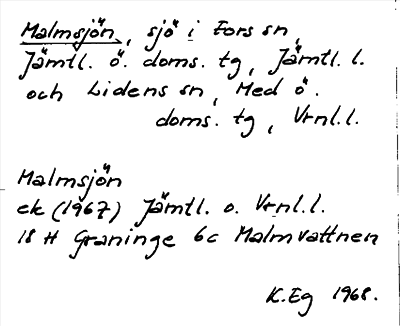 Malmsjön, sjö i Fors sn,
Jämtl. ö. doms. tg, Jämtl. l.
och Lidens sn, Med ö.
doms. tg, Vrnl.l.
Malmsjön
ek (1967) Jämtl. o. Vrnl.l.
18 H Graninge 6c Malmvattnen
K.Eg 1968.